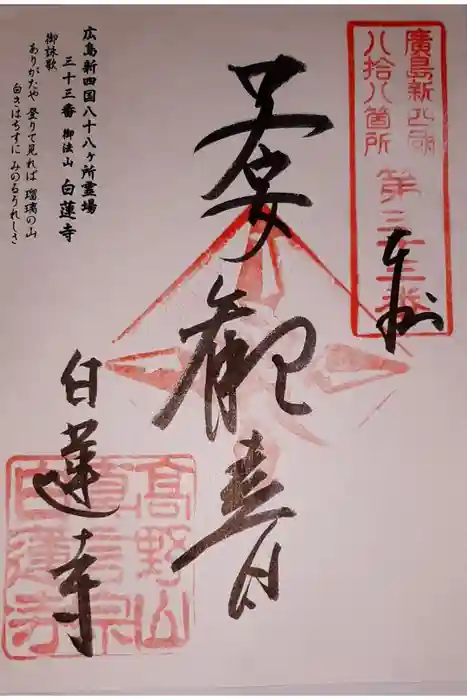 廣島新四國
八拾八箇所 第三十三番
奉拝
子安
観音
白蓮寺
高野山
真言宗
白蓮寺
広島新四国八十八ヶ所霊場
三十三番 御法山 白蓮寺
御詠歌
ありがたや 登りて見れば 瑠璃の山
白きはちすに みのるうれしさ